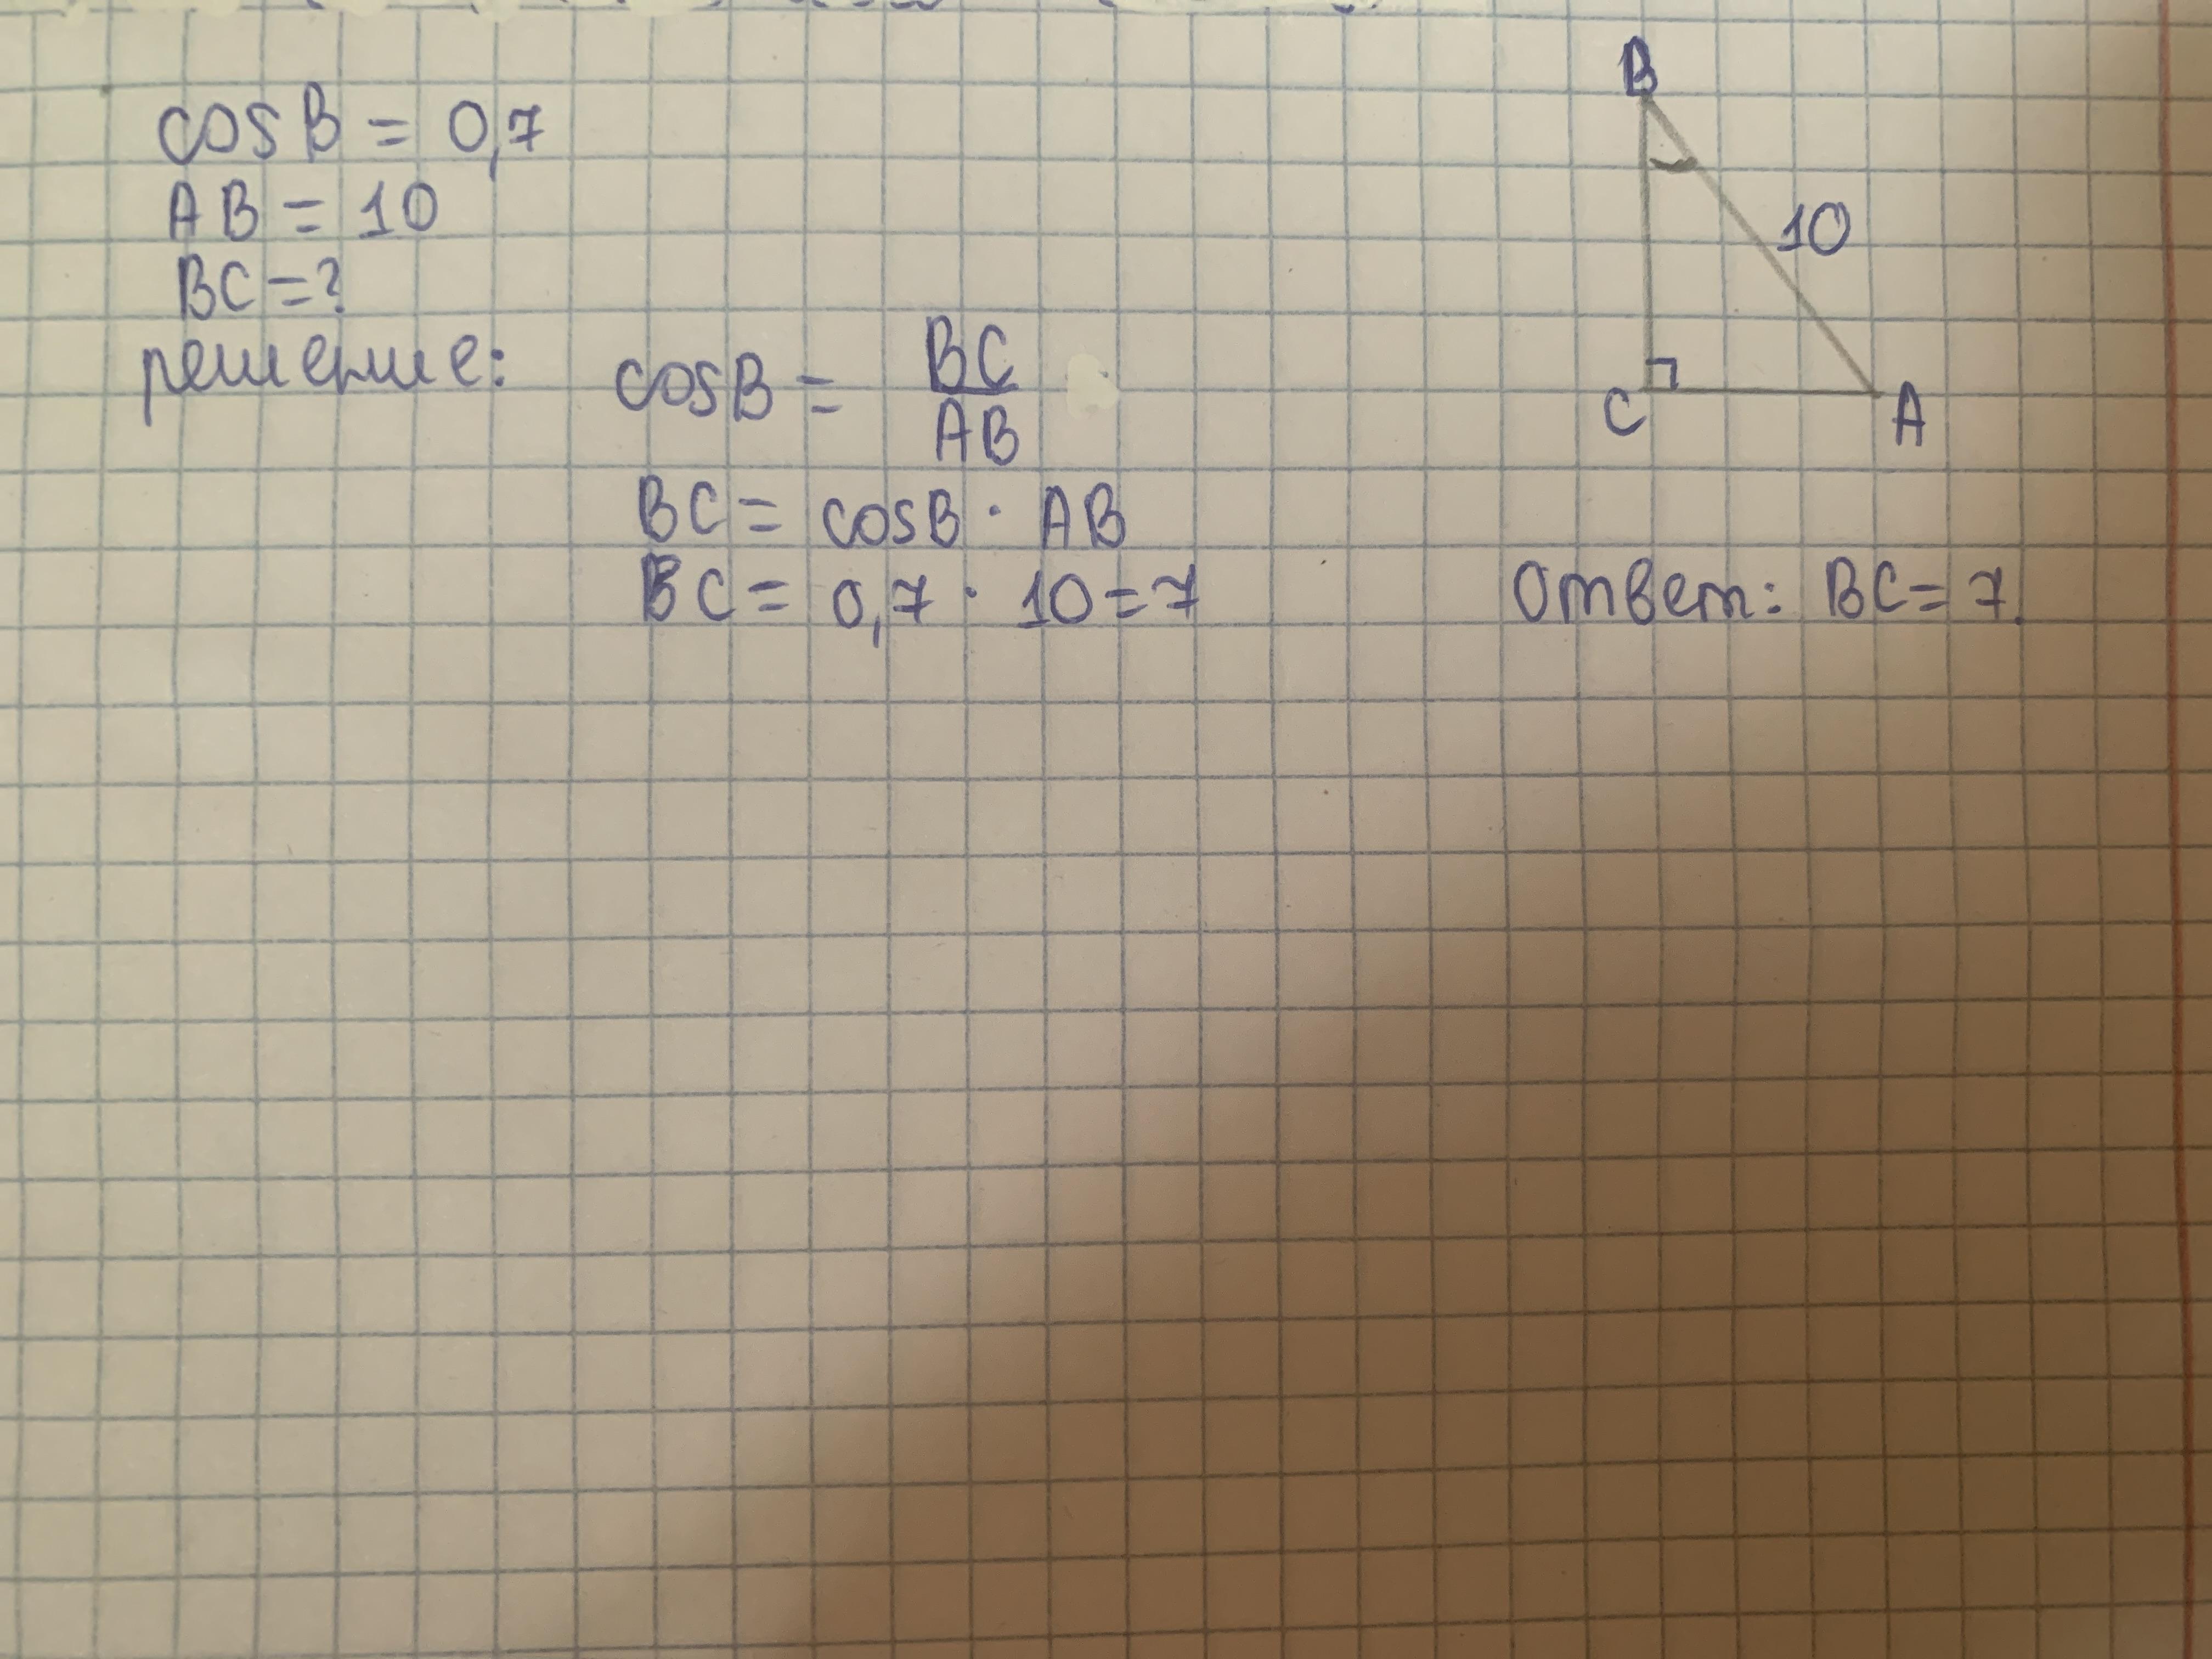 cosB = 0,7
AB = 10
BC = ?
решение:
cosB = BC/AB
BC = cosB · AB
BC = 0,7 · 10 = 7
B
10
C
A
Ответ: BC = 7.